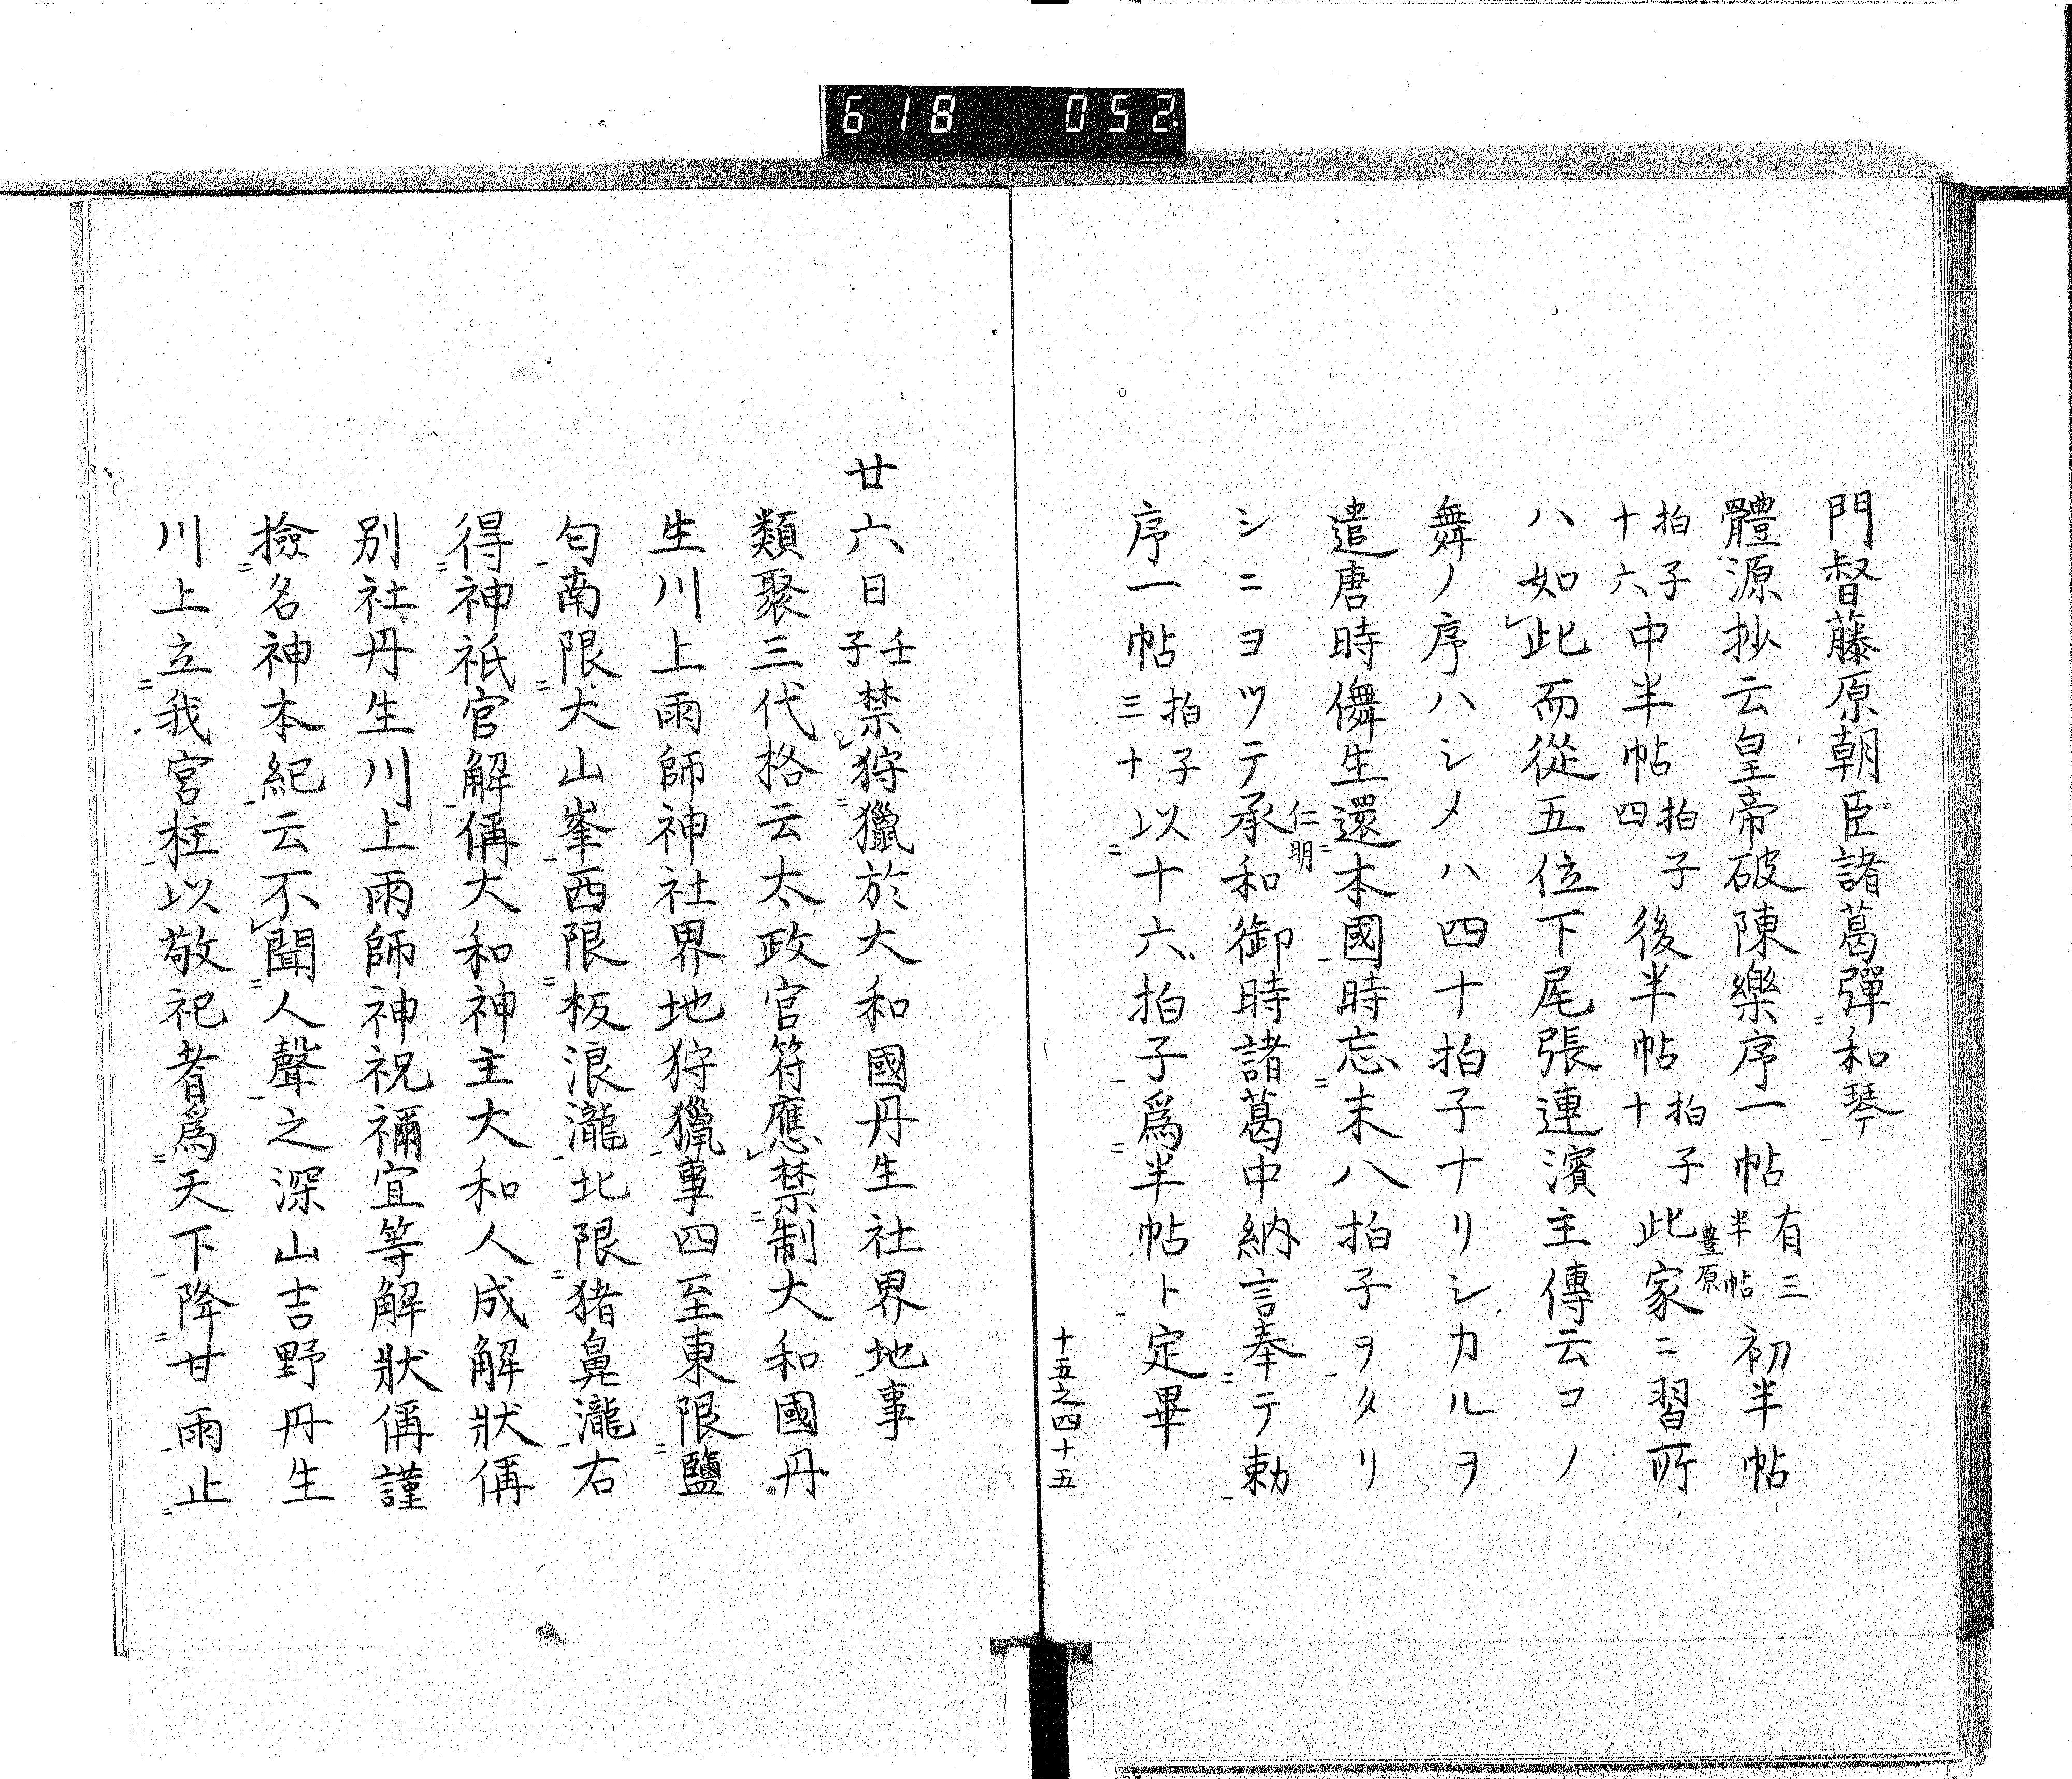 618 052
門督藤原朝臣諸葛彈和琴
體源抄云皇帝破陳樂序一帖有三半帖初半帖
拍子十六中半帖拍子四後半帖拍子十此家ニ習所
豊原
ハ如此而從五位下尾張連濱主傳云コノ
舞ノ序ハシメハ四十拍子ナリシカルヲ
遣唐時儛生還本國時忘末八拍子ヲタリ
仁明
シニヨツテ承和御時諸葛中納言奉テ勅
序一帖拍子三十以十六拍子爲半帖ト定畢
十五之四十五
廿六日壬子禁狩獵於大和國丹生社界地事
類聚三代格云太政官符應禁制大和國丹
生川上雨師神社界地狩獵事四至東限鹽
匂南限犬山峯西限板浪瀧北限猪鼻瀧右
得神祇官解偁大和神主大和人成解狀偁
別社丹生川上雨師神祝禰宜等解狀偁謹
撿名神本紀云不聞人聲之深山吉野丹生
川上立我宮柱以敬祀者爲天下降甘雨止